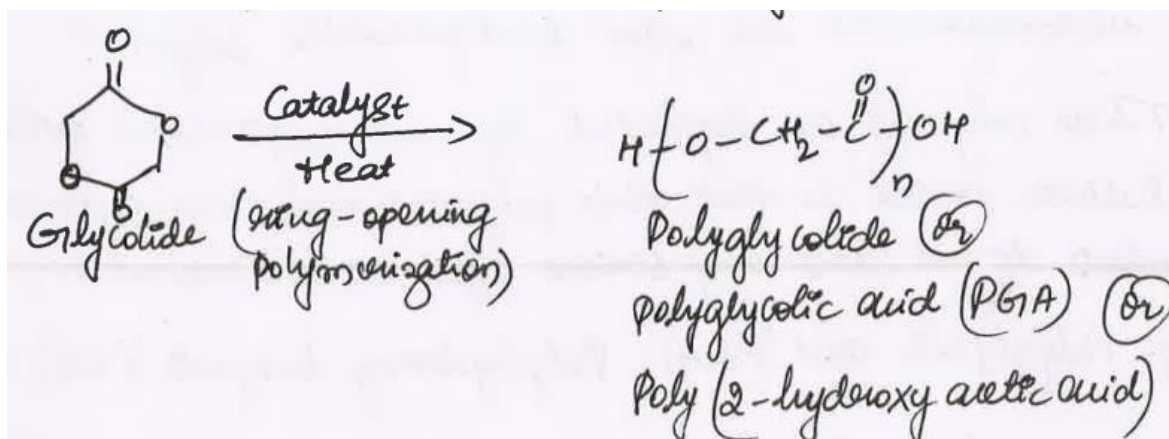 O
O
O
O
Glycolide
Catalyst
Heat
(ring-opening
polymerization)
O
H-(O-CH2-C)-OH
n
Polyglycolide (or)
Polyglycolic acid (PGA) (or)
Poly (2-hydroxy acetic acid)